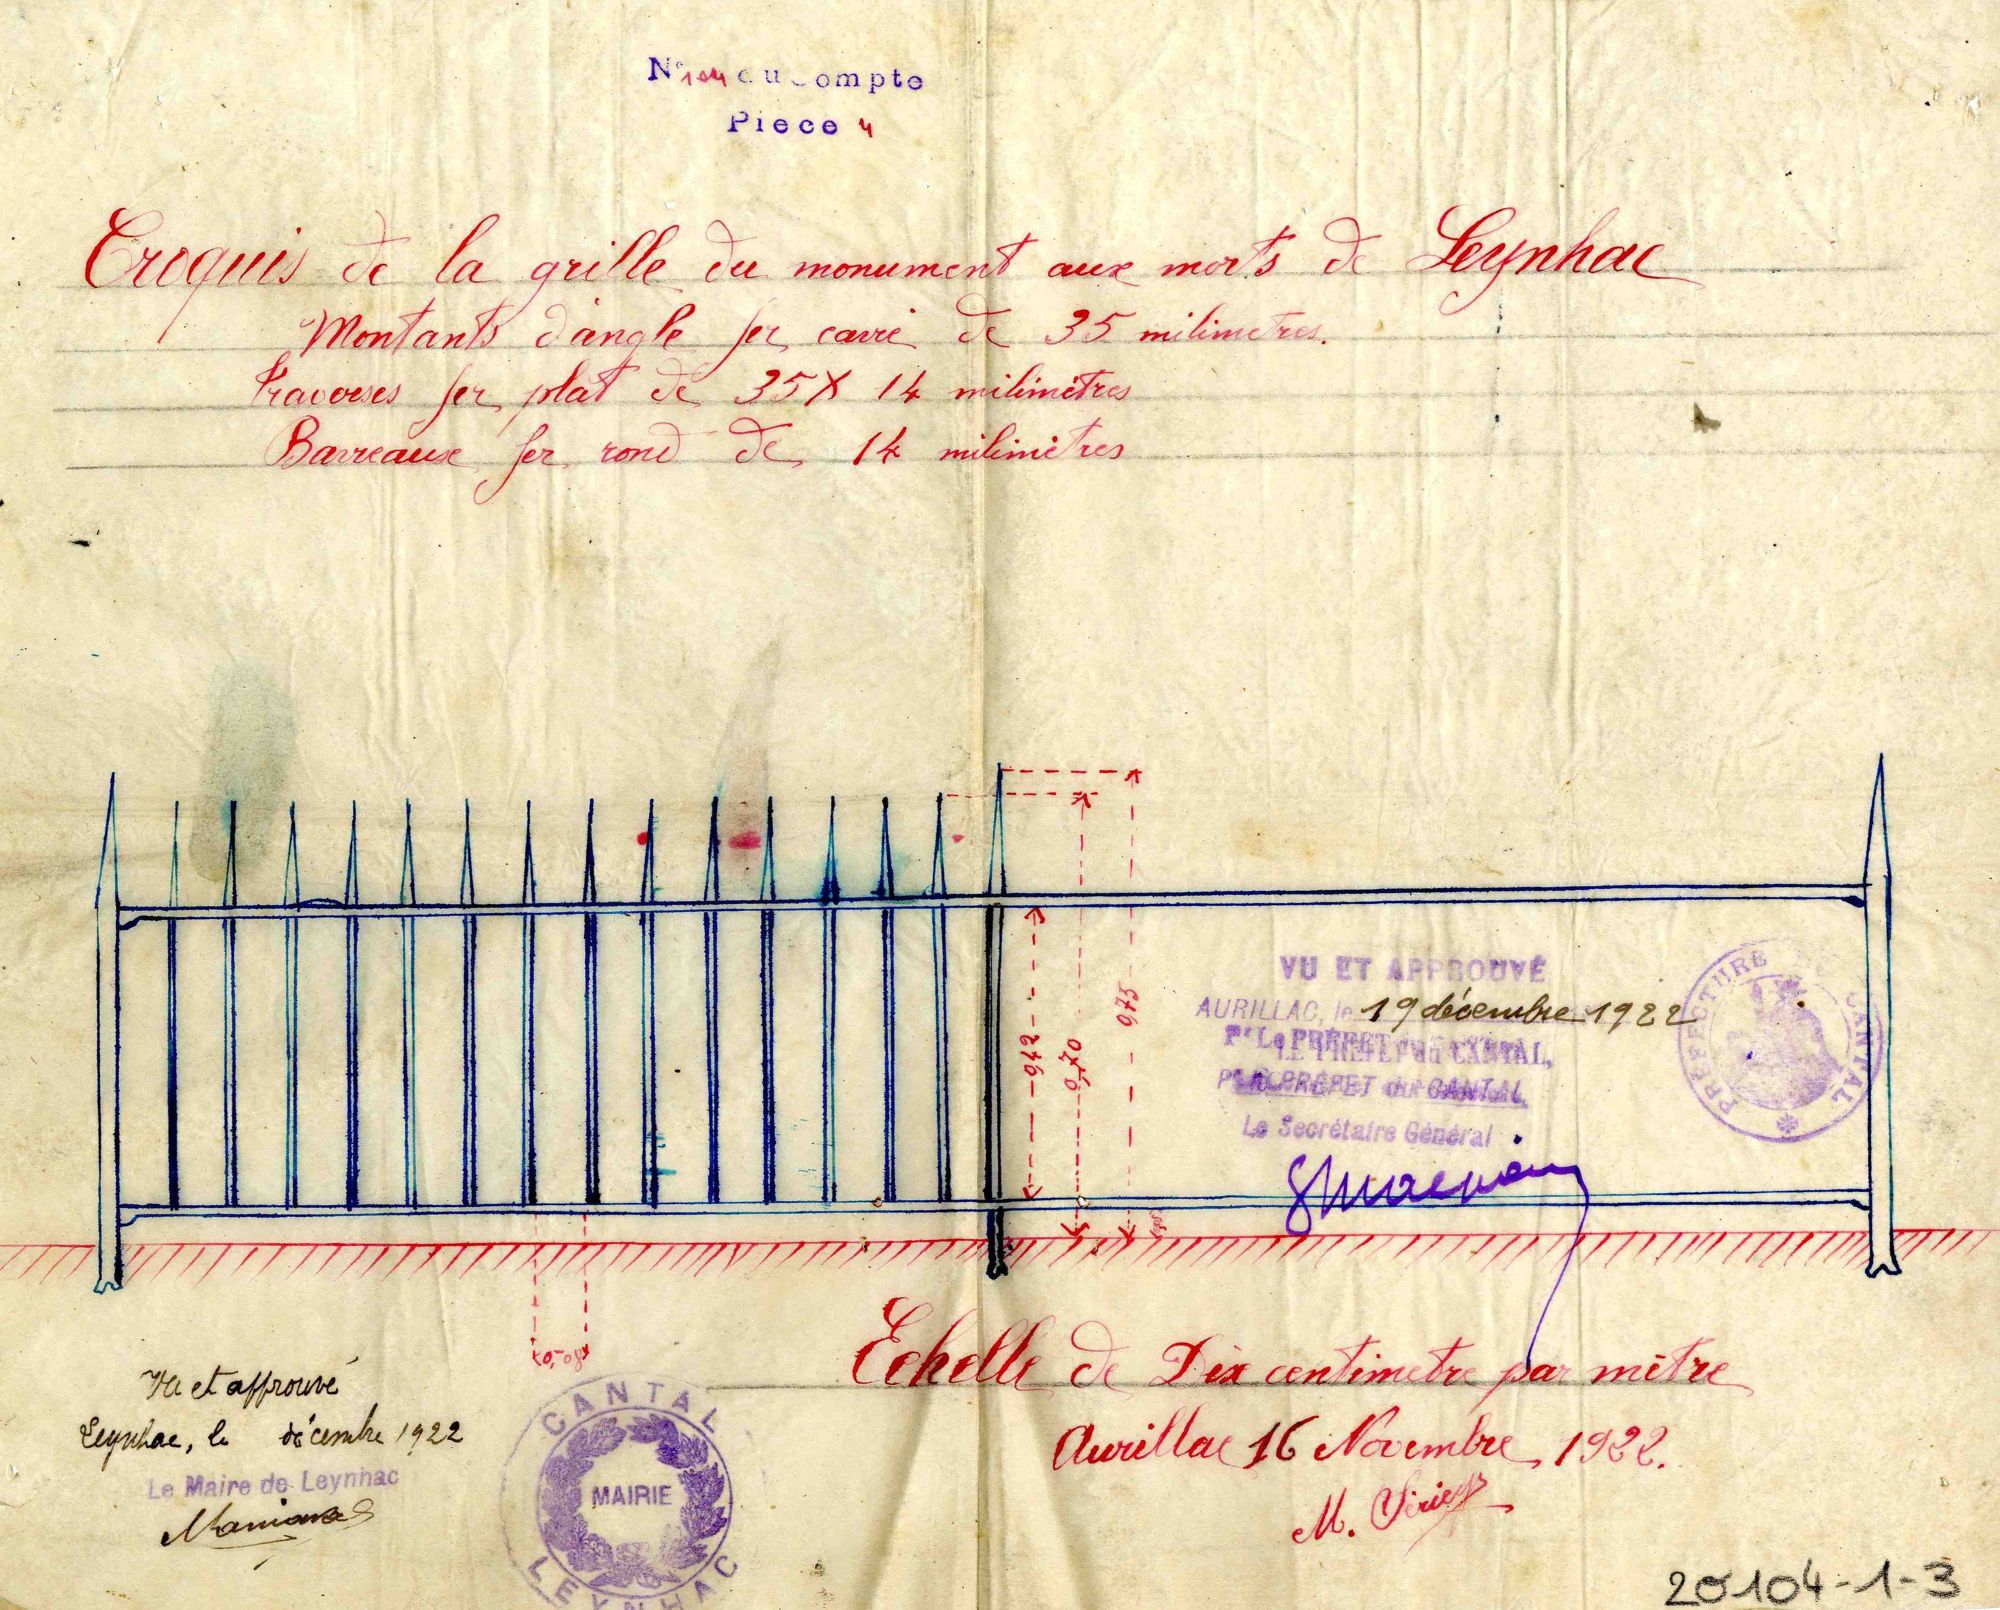 N° 104 du Compte
Piece 4
Croquis de la grille du monument aux morts de Leynhac
Montants d'angle fer carré de 35 milimetres.
Traverses fer plat de 35 X 14 milimètres
Barreaux fer rond de 14 milimètres
0,42
0,70
0,75
0,08
VU ET APPROUVÉ
AURILLAC, le 19 décembre 1922
Pr Le PRÉFET
LE PRÉFET du CANTAL,
Pr LE PRÉFET du CANTAL
Le Secrétaire Général
PRÉFECTURE CANTAL
Vu et approuvé
Leynhac, le décembre 1922
Le Maire de Leynhac
CANTAL
MAIRIE
LEYNHAC
Echelle de Dix centimetre par mètre
Aurillac 16 Novembre 1922.
M.
20104-1-3